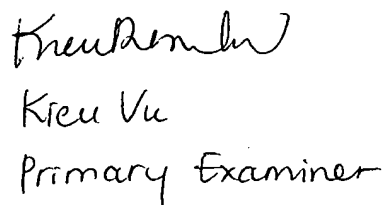 Kieu Vu
Primary Examiner